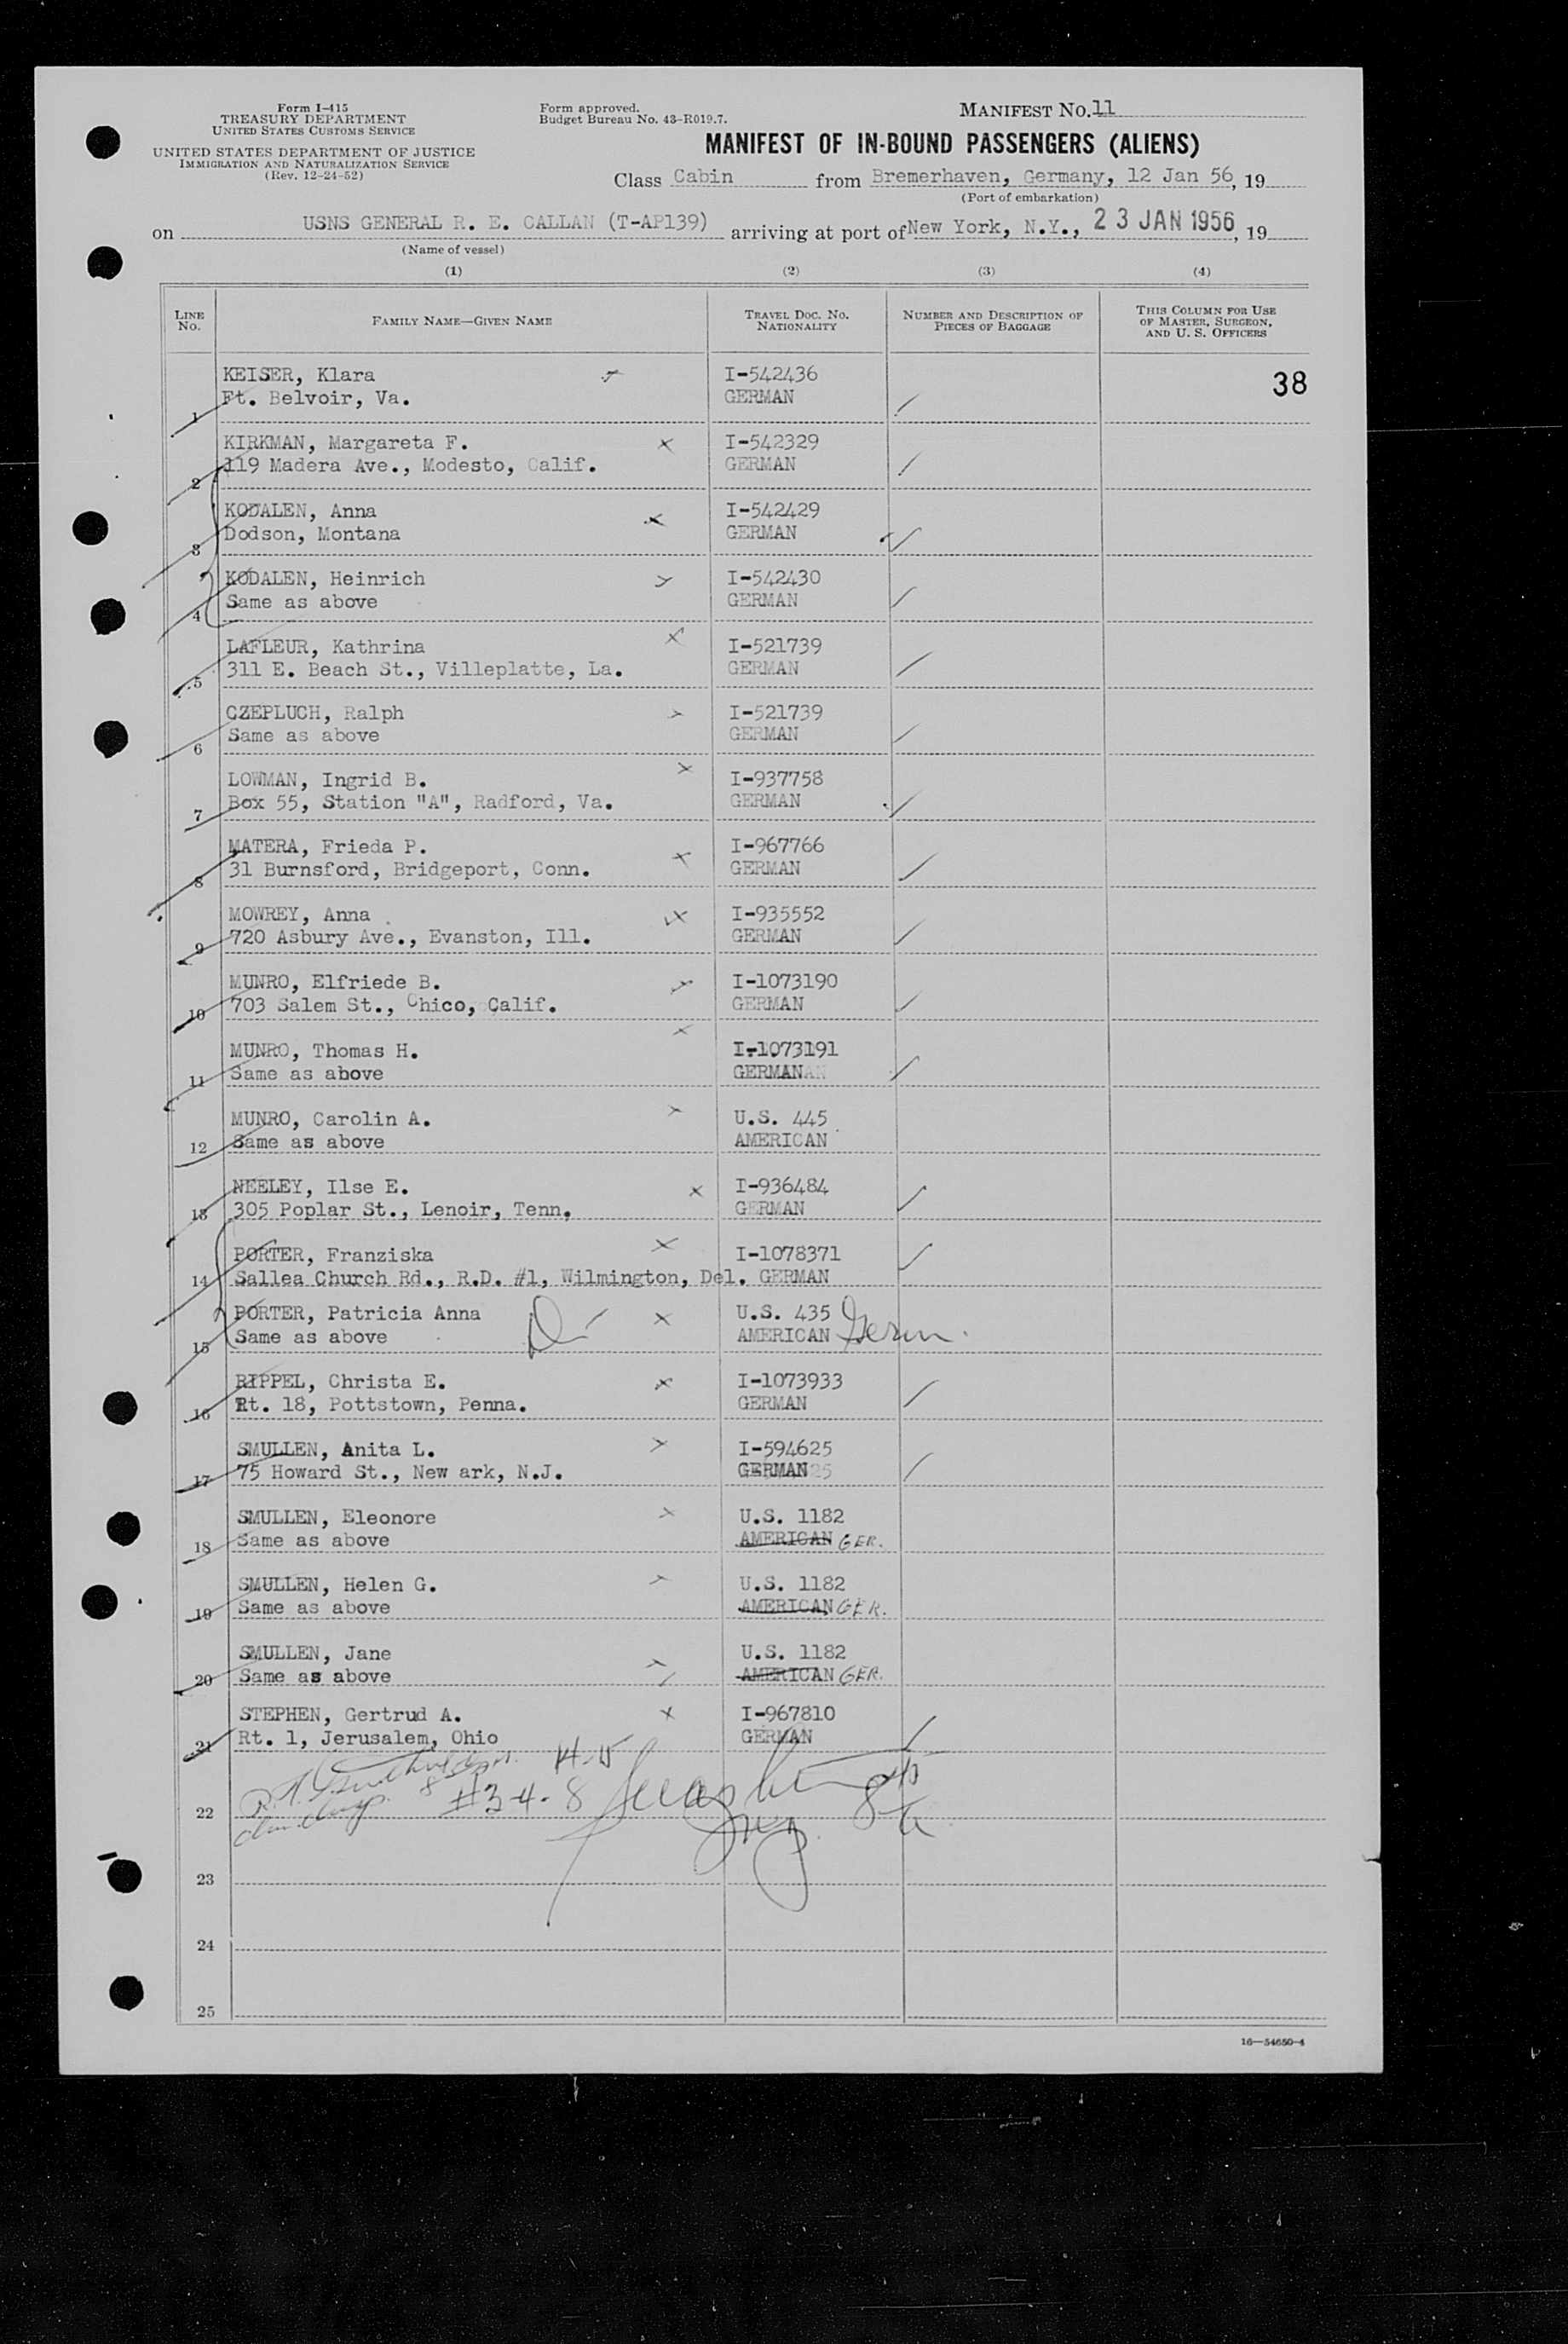 Form I-415
TREASURY DEPARTMENT
UNITED STATES CUSTOMS SERVICE
UNITED STATES DEPARTMENT OF JUSTICE
IMMIGRATION AND NATURALIZATION SERVICE
(Rev. 12-24-52)
Form approved.
Budget Bureau No. 43-R019.7.
MANIFEST No. 11
MANIFEST OF IN-BOUND PASSENGERS (ALIENS)
Class Cabin from Bremerhaven, Germany, 12 Jan 56, 19
(Port of embarkation)
on USNS GENERAL R. E. CALLAN (T-AP139) arriving at port of New York, N.Y., 23 JAN 1956, 19
(Name of vessel)
(1) (2) (3) (4)
LINE No. FAMILY NAME—GIVEN NAME TRAVEL DOC. NO. NATIONALITY NUMBER AND DESCRIPTION OF PIECES OF BAGGAGE THIS COLUMN FOR USE OF MASTER, SURGEON, AND U. S. OFFICERS
KEISER, Klara I-542436 38
1 Ft. Belvoir, Va. GERMAN
KIRKMAN, Margareta F. I-542329
2 119 Madera Ave., Modesto, Calif. GERMAN
KODALEN, Anna I-542429
3 Dodson, Montana GERMAN
KODALEN, Heinrich I-542430
4 Same as above GERMAN
LAFLEUR, Kathrina I-521739
5 311 E. Beach St., Villeplatte, La. GERMAN
CZEPLUCH, Ralph I-521739
6 Same as above GERMAN
LOWMAN, Ingrid B. I-937758
7 Box 55, Station "A", Radford, Va. GERMAN
MATERA, Frieda P. I-967766
8 31 Burnsford, Bridgeport, Conn. GERMAN
MOWREY, Anna I-935552
9 720 Asbury Ave., Evanston, Ill. GERMAN
MUNRO, Elfriede B. I-1073190
10 703 Salem St., Chico, Calif. GERMAN
MUNRO, Thomas H. I-1073191
11 Same as above GERMAN
MUNRO, Carolin A. U.S. 445
12 Same as above AMERICAN
NEELEY, Ilse E. I-936484
13 305 Poplar St., Lenoir, Tenn. GERMAN
PORTER, Franziska I-1078371
14 Sallea Church Rd., R.D. #1, Wilmington, Del. GERMAN
PORTER, Patricia Anna U.S. 435
15 Same as above AMERICAN Germ.
RIPPEL, Christa E. I-1073933
16 Rt. 18, Pottstown, Penna. GERMAN
SMULLEN, Anita L. I-594625
17 75 Howard St., New ark, N.J. GERMAN
SMULLEN, Eleonore U.S. 1182
18 Same as above AMERICAN GER.
SMULLEN, Helen G. U.S. 1182
19 Same as above AMERICAN GER.
SMULLEN, Jane U.S. 1182
20 Same as above AMERICAN GER.
STEPHEN, Gertrud A. I-967810
21 Rt. 1, Jerusalem, Ohio GERMAN
14-15
#3-4-8
22
23
24
25
16—54650-4